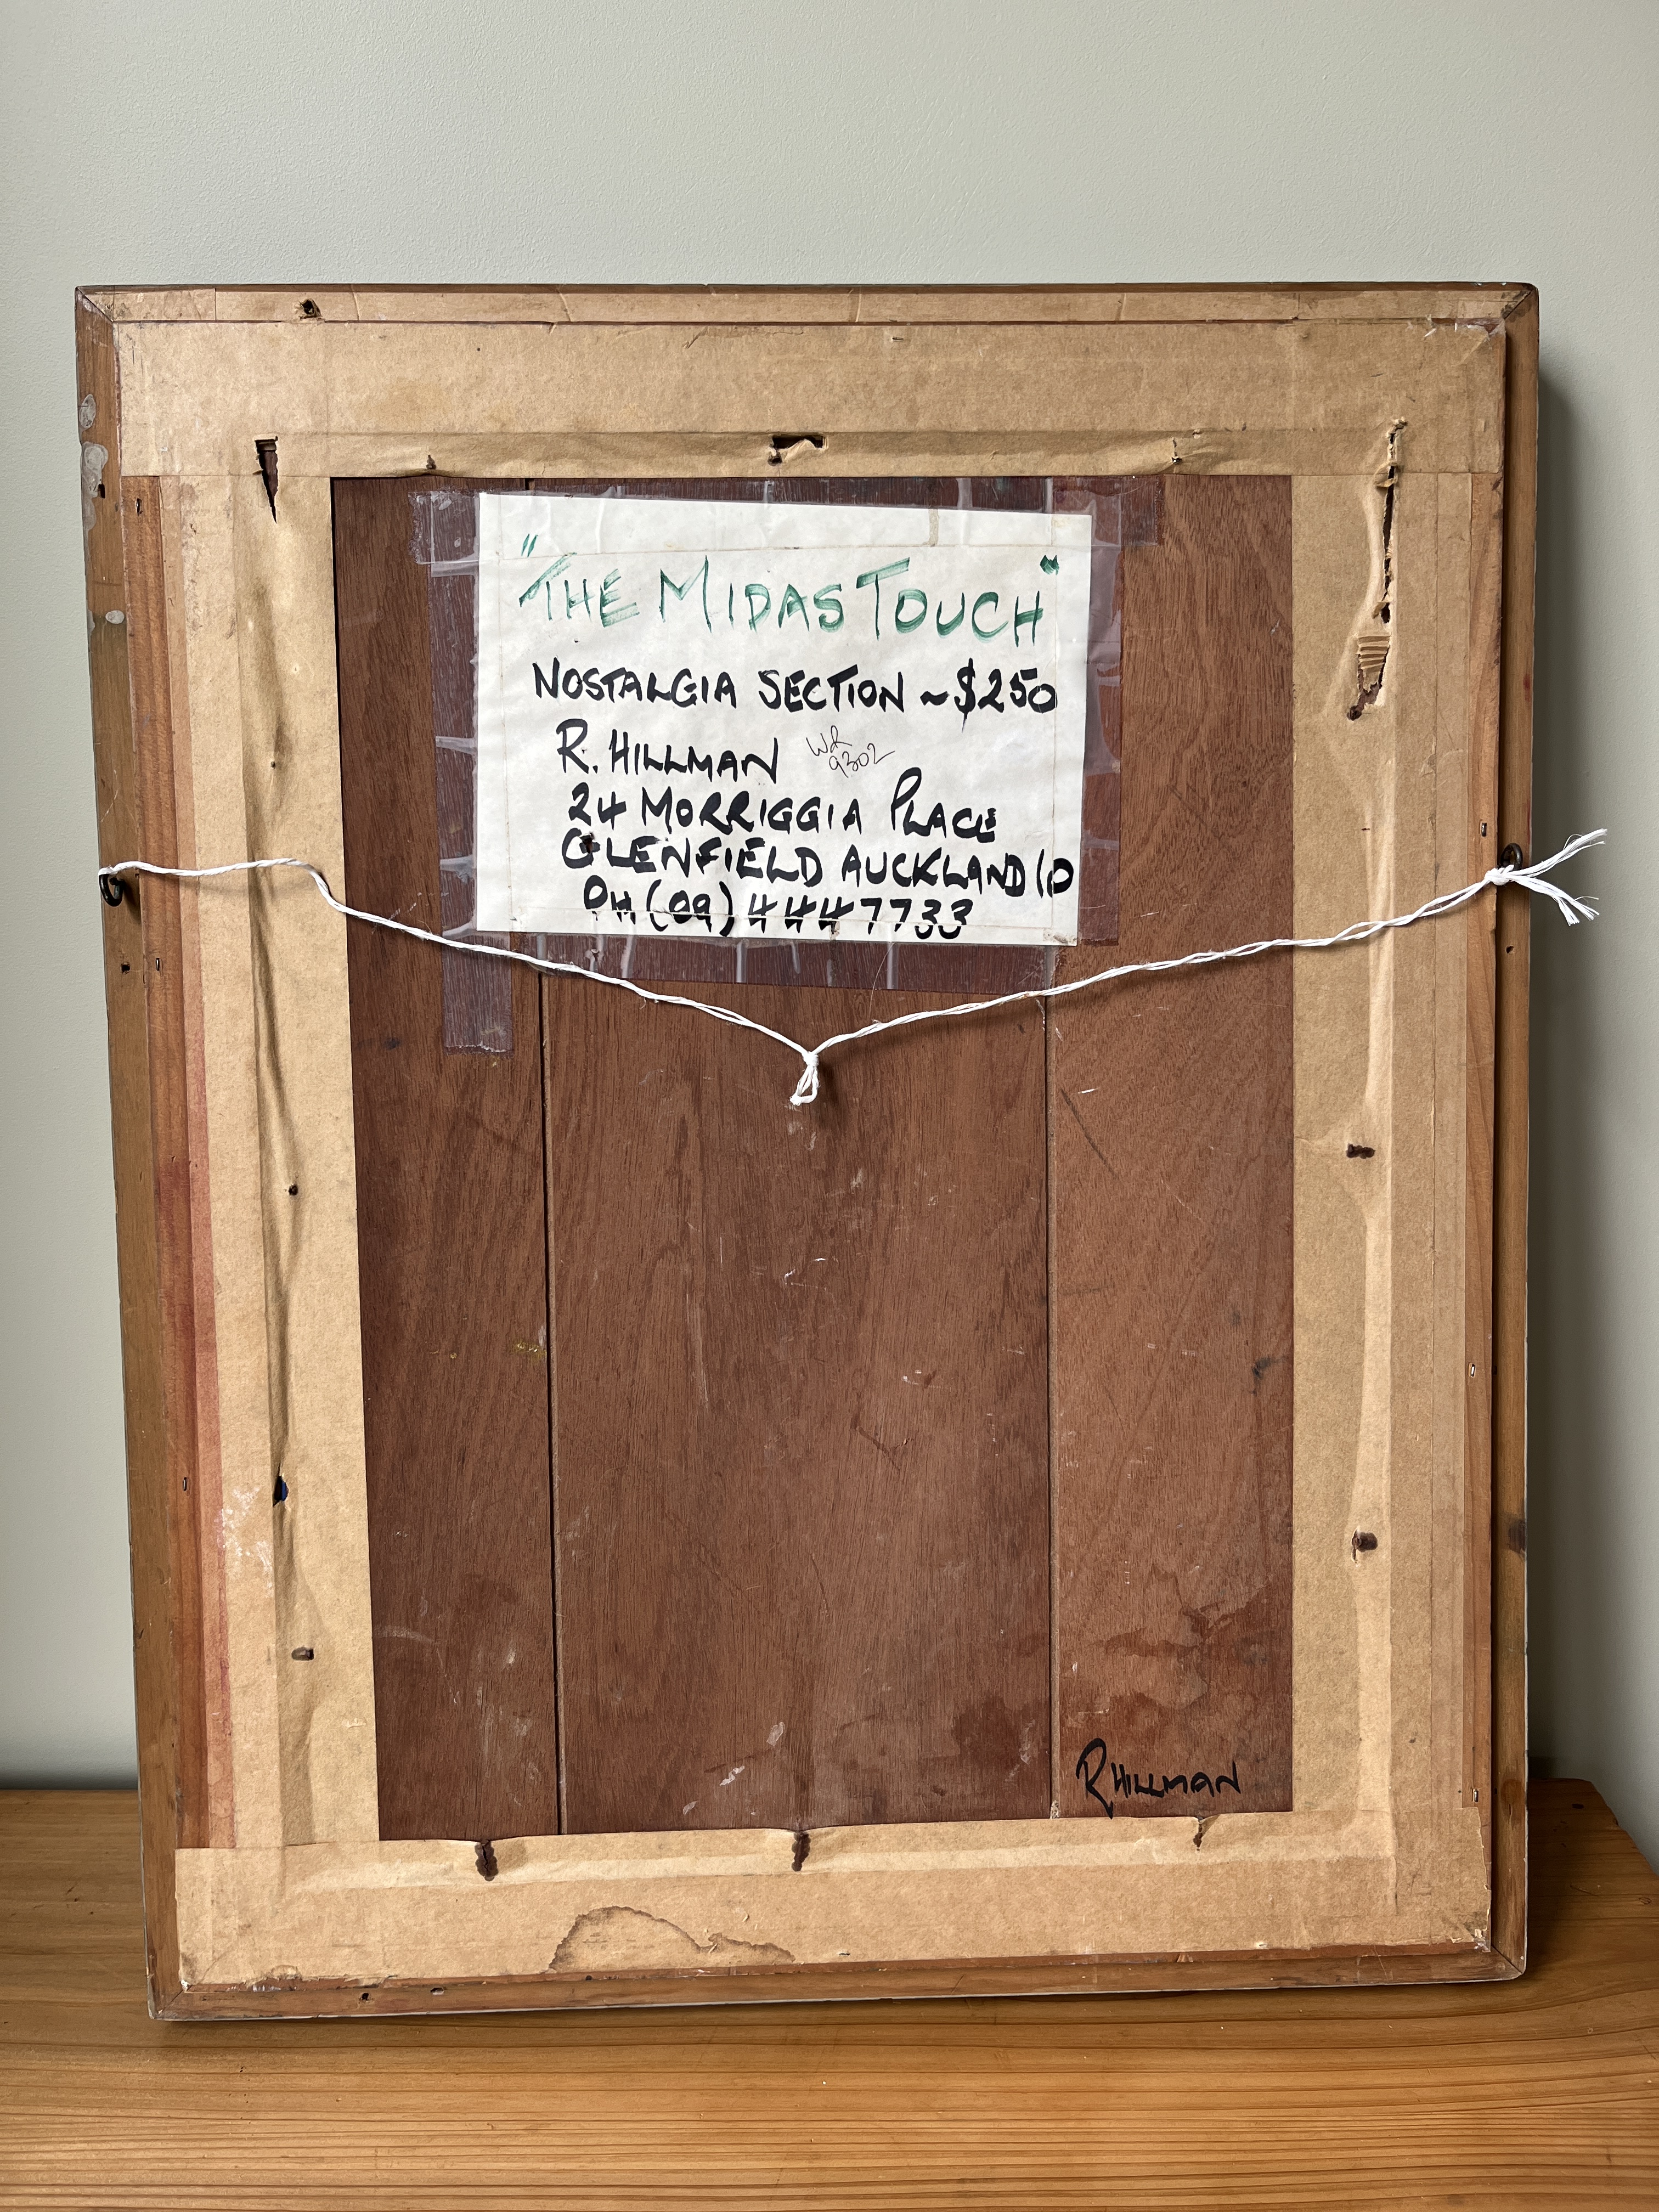 "THE MIDAS TOUCH"
NOSTALGIA SECTION ~ $250
R. HILLMAN
WR
9302
24 MORRIGGIA PLACE
GLENFIELD AUCKLAND 10
PH (09) 444 7733
R HILLMAN